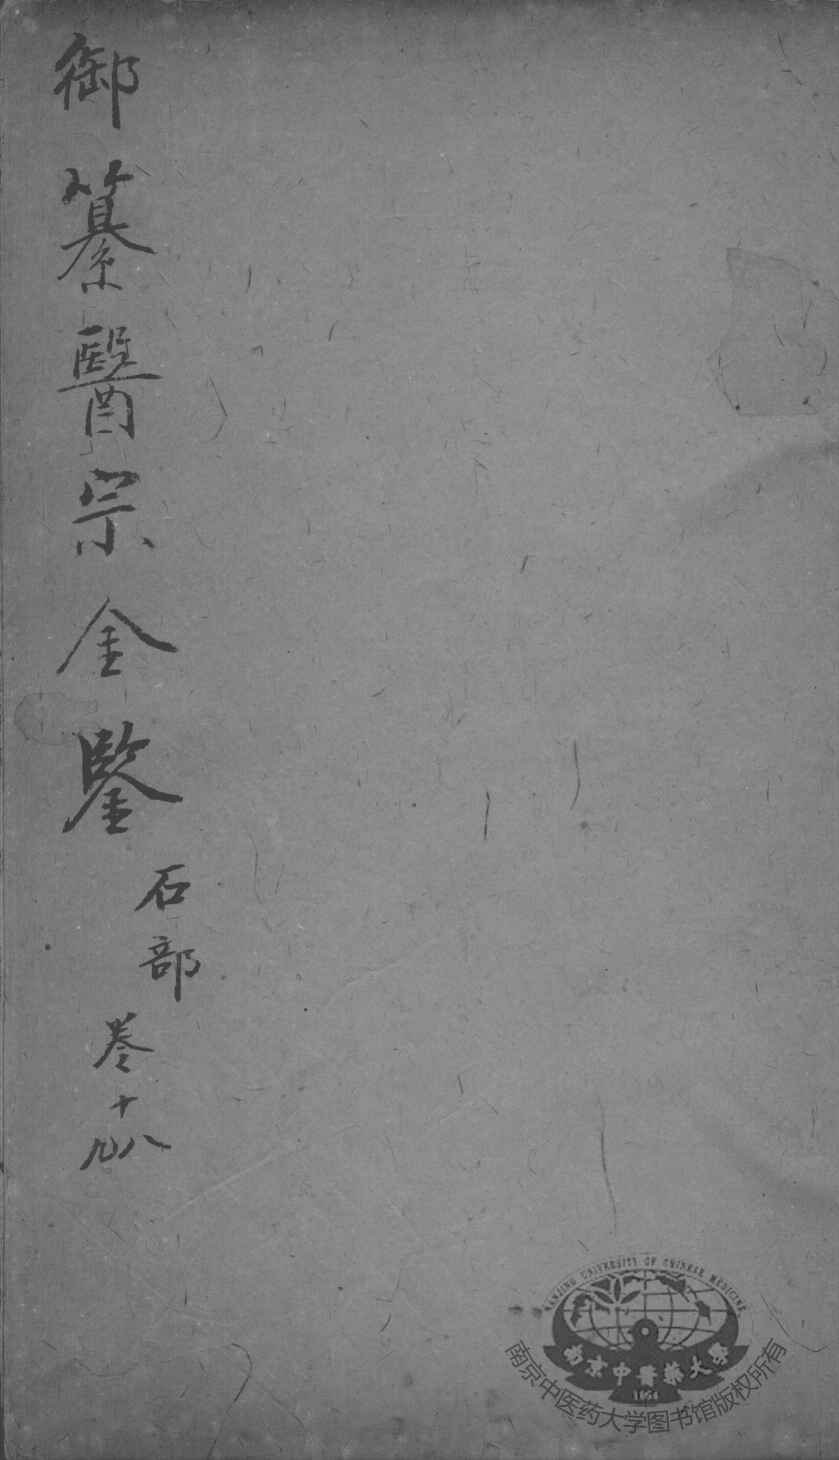 御纂醫宗金鑒
石部
卷十八九
NANJING UNIVERSITY OF CHINESE MEDICINE
南京中醫藥大學
1954
南京中医药大学图书馆版权所有